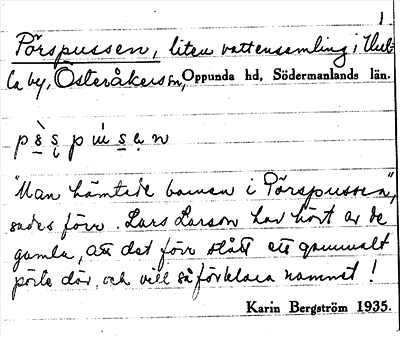 1
Pörspussen, liten vattensamling i Ulvb-
la by, Österåkers sn, Oppunda hd, Södermanlands län.
"Man hämtade barnen i Pörspussen",
sades förr. Lars Larson har hört av de
gamla, att det förr stått ett gammalt
pörte där, och vill så förklara namnet!
Karin Bergström 1935.